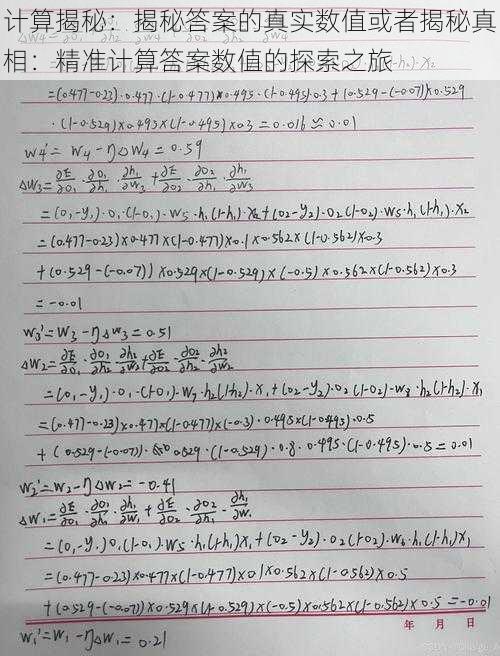 计算揭秘：揭秘答案的真实数值或者揭秘真
相：精准计算答案数值的探索之旅
=(0.477-0.23)·0.477·(1-0.477)×0.495·(1-0.495)·0.3+(0.529-(-0.07))×0.529
·(1-0.529)×0.495×(1-0.495)×0.3=0.016≈0.01
w4'=w4-η△w4=0.59
△w3=∂E/∂o1·∂o1/∂h1·∂h1/∂w3+∂E/∂o2·∂o2/∂h1·∂h1/∂w3
=(o1-y1)·o1·(1-o1)·w5·h1(1-h1)·x2+(o2-y2)·o2(1-o2)·w5·h1(1-h1)·x2
=(0.477-0.23)×0.477×(1-0.477)×0.1×0.562×(1-0.562)×0.3
+(0.529-(-0.07))×0.529×(1-0.529)×(-0.5)×0.562×(1-0.562)×0.3
=-0.01
w3'=w3-η△w3=0.51
△w2=∂E/∂o1·∂o1/∂h2·∂h2/∂w2+∂E/∂o2·∂o2/∂h2·∂h2/∂w2
=(o1-y1)·o1·(1-o1)·w7·h2(1-h2)·x1+(o2-y2)·o2(1-o2)·w8·h2(1-h2)·x1
=(0.477-0.23)×0.477×(1-0.477)×(-0.3)·0.495×(1-0.495)·0.5
+(0.529-(-0.07))·0.529·(1-0.529)·0.8·0.495·(1-0.495)·0.5=0.01
w2'=w2-η△w2=-0.41
△w1=∂E/∂o1·∂o1/∂h1·∂h1/∂w1+∂E/∂o2·∂o2/∂h1·∂h1/∂w1
=(o1-y1)o1(1-o1)·w5·h1(1-h1)x1+(o2-y2)·o2(1-o2)·w6·h1(1-h1)x1
=(0.477-0.23)×0.477×(1-0.477)×0.1×0.562×(1-0.562)×0.5
+(0.529-(-0.07))×0.529×(1-0.529)×(-0.5)×0.562×(1-0.562)×0.5=-0.01
年 月 日
w1'=w1-η△w1=0.21